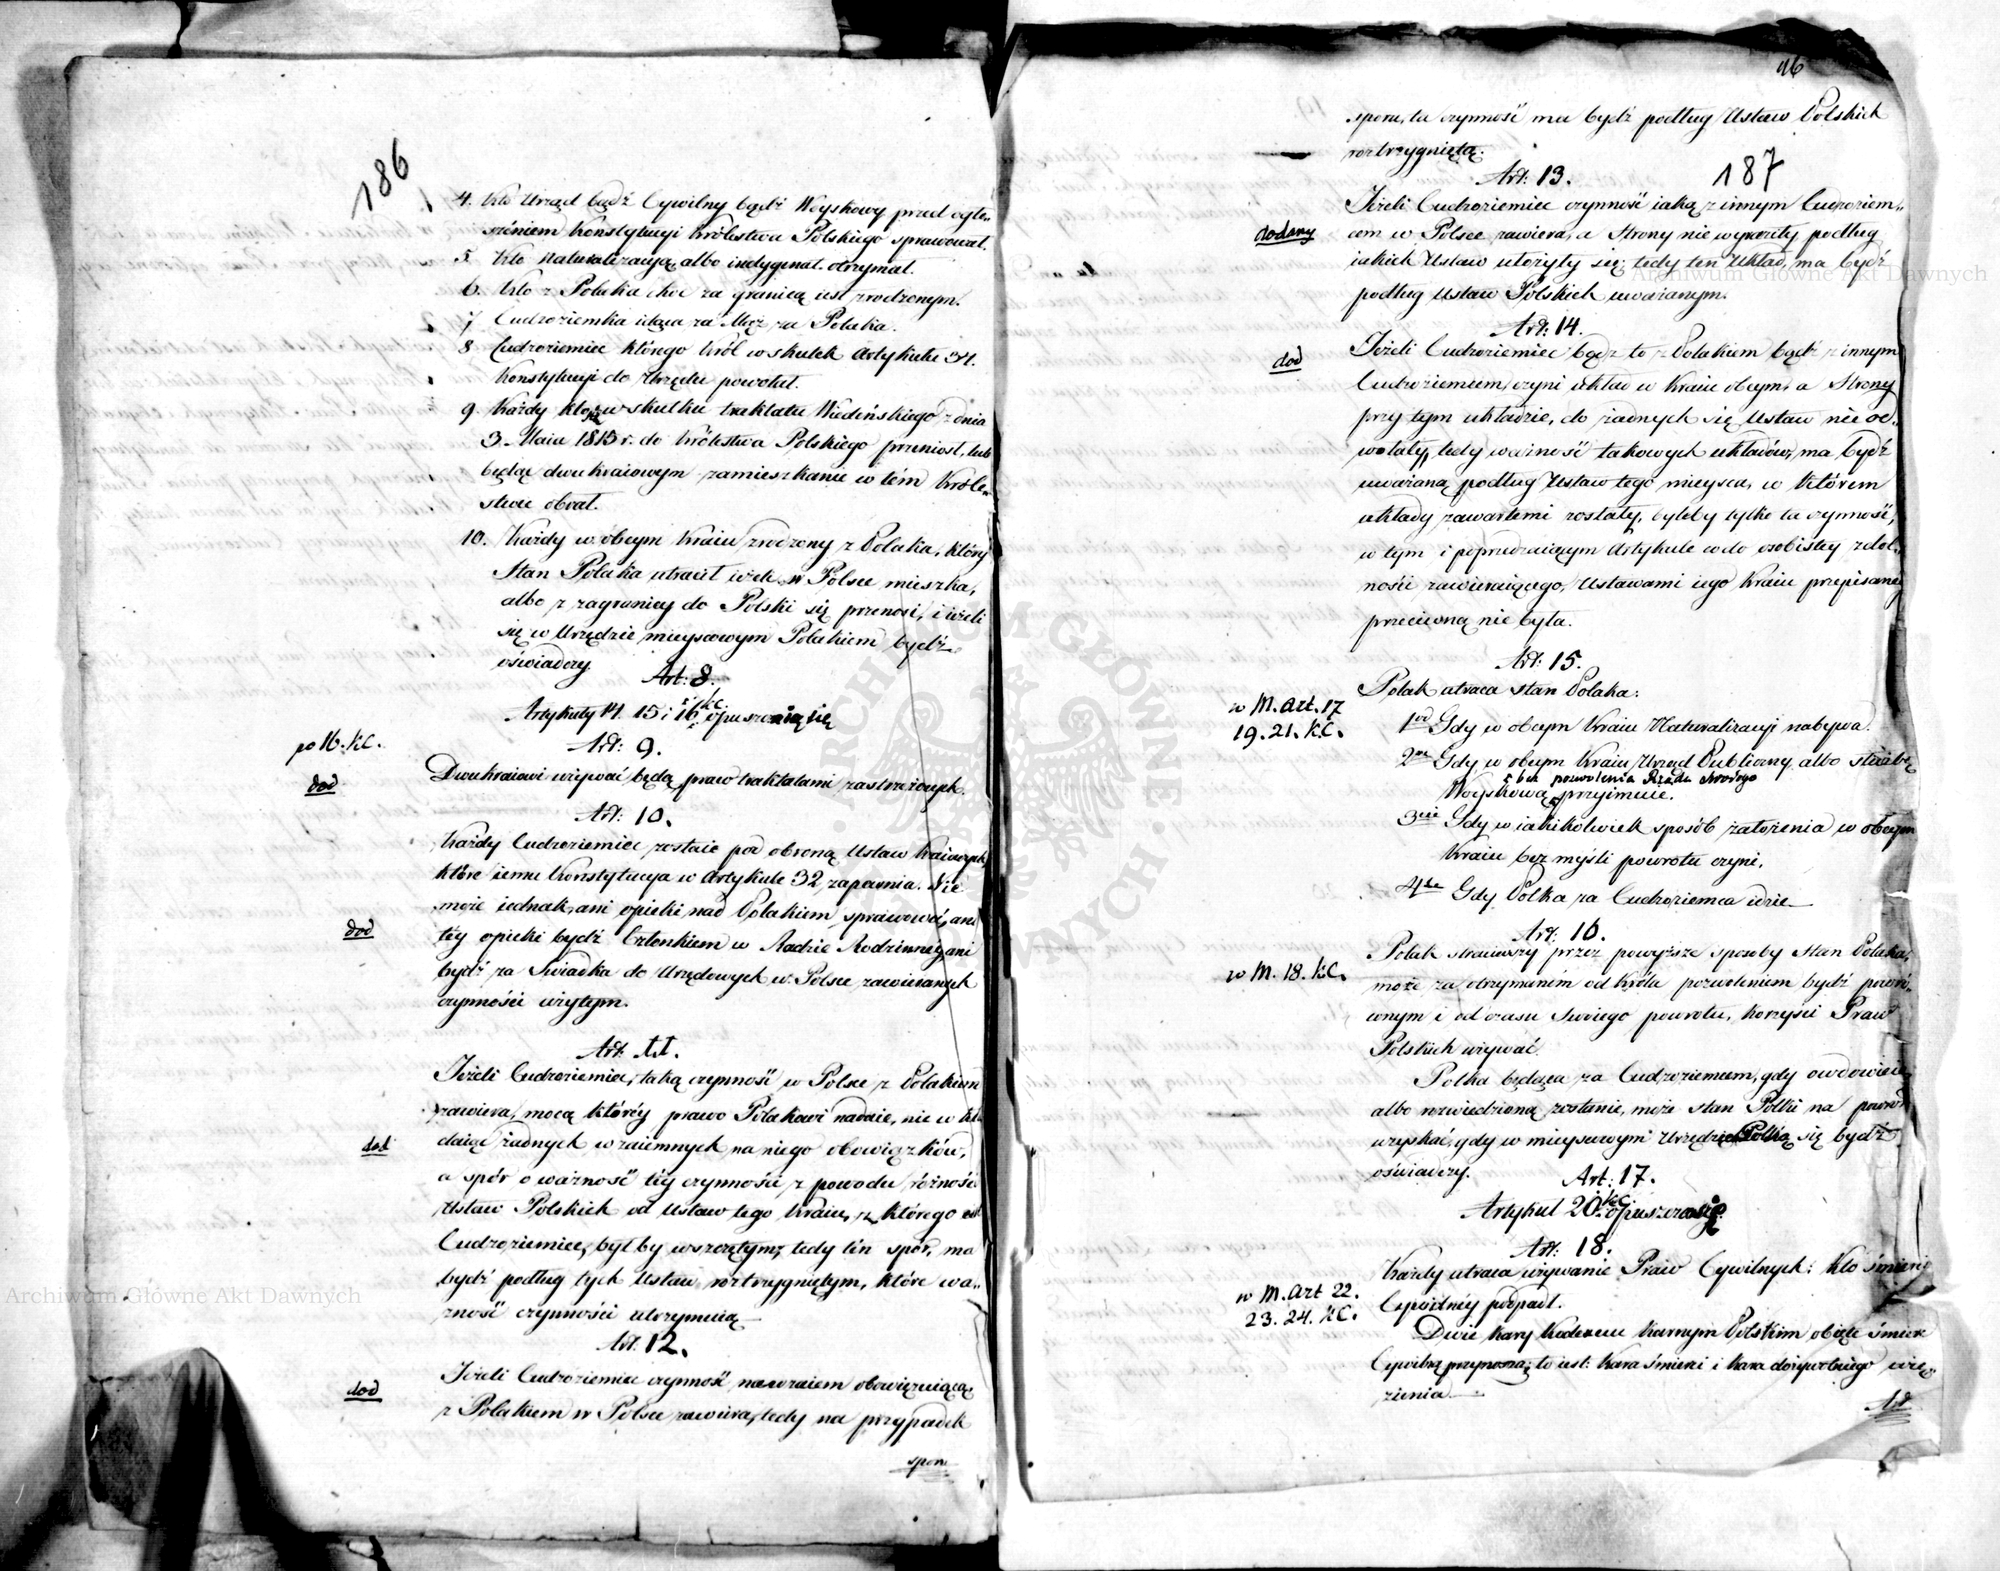 186
4. Kto Urząd bądź Cywilny bądź Woyskowy przed ogło-
szeniem Konstytucyi Królestwa Polskiego sprawował.
5. Kto naturalizacyą albo indygenat otrzymał.
6. Kto z Polaka choć za granicą iest zrodzonym.
7 Cudzoziemka idąca za Mąż za Polaka.
8 Cudzoziemiec którego Król w skutek Artykułu 34.
Konstytucyi do Urzędu powołał.
9. Każdy kto się w skutku traktatu Wiedeńskiego z dnia
3. Maia 1815 r. do Królestwa Polskiego przeniósł, lub
będąc dwukraiowym zamieszkanie w tém Króle-
stwie obrał.
10. Każdy w obcym Kraiu zrodzony z Polaka, który
Stan Polaka utracił ieżeli w Polsce mieszka,
albo z zagranicy do Polski się przenosi, i ieżeli
się w Urzędzie mieyscowym Polakiem bydź
oświadczy.
Art: 8.
Artykuły 14. 15 i 16 KC. opuszczaią się
po 16. K.C.
Art: 9.
dod
Dwukraiowi używać będą praw traktatami zastrzeżonych.
Art: 10.
Każdy Cudzoziemiec zostaie pod obroną Ustaw Kraiowych,
które iemu Konstytucya w Artykule 32 zapewnia. Nie
może iednak, ani opieki nad Polakiem sprawować, ani
dod
téy opieki bydź Członkiem w Radzie Rodzinnéy, ani
bydź za Swiadka do Urzędowych w Polsce zawieranych
czynności użytym.
Art. 11.
Ieżeli Cudzoziemiec, taką czynność w Polsce z Polakiem
zawiera, mocą któréy prawo Polakowi nadaie, nie wkła-
dod
daiąc żadnych wzaiemnych na niego obowiązków,
a spór o ważność téy czynności z powodu różności
Ustaw Polskich od Ustaw tego Kraiu, z którego iest
Cudzoziemiec, byłby wszczętym; tedy tén spór, ma
bydź podług tych Ustaw roztrzygniętym, które wa-
żność czynności utrzymuią
Art. 12.
dod
Ieżeli Cudzoziemiec czynność nawzaiem obowięzuiącą
z Polakiem w Polsce zawiera, tedy na przypadek
sporu
96
sporu, ta czynność ma bydź podług Ustaw Polskich
roztrzygniętą.
187
Art: 13.
Ieżeli Cudzoziemiec czynność iaką z innym Cudzoziem-
dodany
cem w Polsce zawiera, a Strony nie wyraziły podług
iakich Ustaw ułożyły się; tedy ten Układ, ma bydź
podług Ustaw Polskich uważanym.
Art: 14.
dod
Ieżeli Cudzoziemiec bądź to z Polakiem bądź z innym
Cudzoziemcem, czyni układ w Kraiu obcym, a Strony
przy tym układzie, do żadnych się Ustaw nie od-
wołały, tedy ważność takowych układów, ma bydź
uważaną podług Ustaw tego mieysca, w którem
układy zawartemi zostały, byleby tylko ta czynność,
w tym i poprzedzaiącym Artykule co do osobistéy zdol-
ności zawieraiącego, Ustawami iego Kraiu przepisanéy
przeciwną nie była.
Art: 15.
Polak utraca stan Polaka:
w M. Art. 17
19. 21. K.C.
1od Gdy w obcym Kraiu Naturalizacyi nabywa.
2re Gdy w obcym Kraiu Urząd Publiczny albo służbę
bez pozwolenia Rządu swoiego
Woyskową przyimuie.
3cie Gdy w iakikolwiek sposób założenia w obcym
Kraiu bez myśli powrotu czyni.
4te Gdy Polka za Cudzoziemca idzie
Art: 16.
Polak straciwszy przez powyższe sposoby Stan Polaka,
w M. 18. K.C.
może za otrzymaném od Króla pozwoleniem bydź powró-
conym i od czasu Swoiego powrotu, korzyści Praw
Polskich używać.
Polka będąca za Cudzoziemcem, gdy owdowieie
albo rozwiedzioną zostanie, może stan Polki na powrót
uzyskać, gdy w mieyscowym Urzędzie Polką się bydź
oświadczy.
Art: 17.
Artykuł 20 KC. opuszcza się.
Art: 18.
Każdy utraca używanie Praw Cywilnych: Kto śmierci
w M. Art 22.
23. 24. K.C.
Cywilnéy podpadł.
Dwie kary Kodexem Karnym Polskim obięte śmierć
Cywilną przynoszą; to iest: Kara śmierci i Kara dożywotniego wię-
zienia
Art
ARCHIWUM GŁÓWNE AKT DAWNYCH
Archiwum Główne Akt Dawnych
Archiwum Główne Akt Dawnych